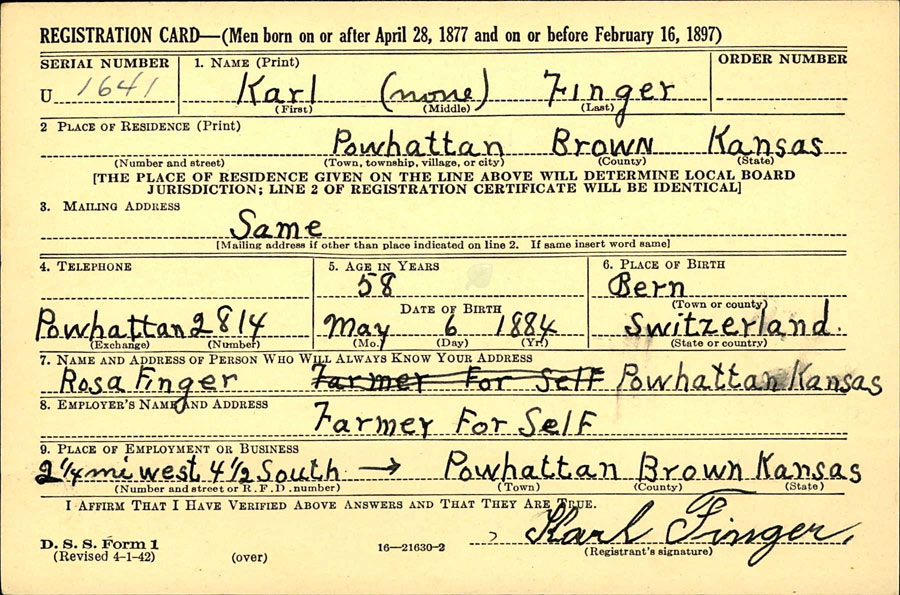 REGISTRATION CARD—(Men born on or after April 28, 1877 and on or before February 16, 1897)
SERIAL NUMBER 1. NAME (Print) ORDER NUMBER
U 1641 Karl (none) Finger
(First) (Middle) (Last)
2 PLACE OF RESIDENCE (Print)
Powhattan Brown Kansas
(Number and street) (Town, township, village, or city) (County) (State)
[THE PLACE OF RESIDENCE GIVEN ON THE LINE ABOVE WILL DETERMINE LOCAL BOARD
JURISDICTION; LINE 2 OF REGISTRATION CERTIFICATE WILL BE IDENTICAL]
3. MAILING ADDRESS
Same
[Mailing address if other than place indicated on line 2. If same insert word same]
4. TELEPHONE 5. AGE IN YEARS 6. PLACE OF BIRTH
58 Bern
DATE OF BIRTH (Town or county)
Powhattan 2814 May 6 1884 Switzerland.
(Exchange) (Number) (Mo.) (Day) (Yr.) (State or country)
7. NAME AND ADDRESS OF PERSON WHO WILL ALWAYS KNOW YOUR ADDRESS
Rosa Finger Farmer For Self Powhattan Kansas
8. EMPLOYER'S NAME AND ADDRESS
Farmer For Self
9. PLACE OF EMPLOYMENT OR BUSINESS
2 1/4 mi west 4 1/2 South → Powhattan Brown Kansas
(Number and street or R. F. D. number) (Town) (County) (State)
I AFFIRM THAT I HAVE VERIFIED ABOVE ANSWERS AND THAT THEY ARE TRUE.
Karl Finger.
D. S. S. Form 1
(Revised 4-1-42) (over) 16—21630-2 (Registrant's signature)